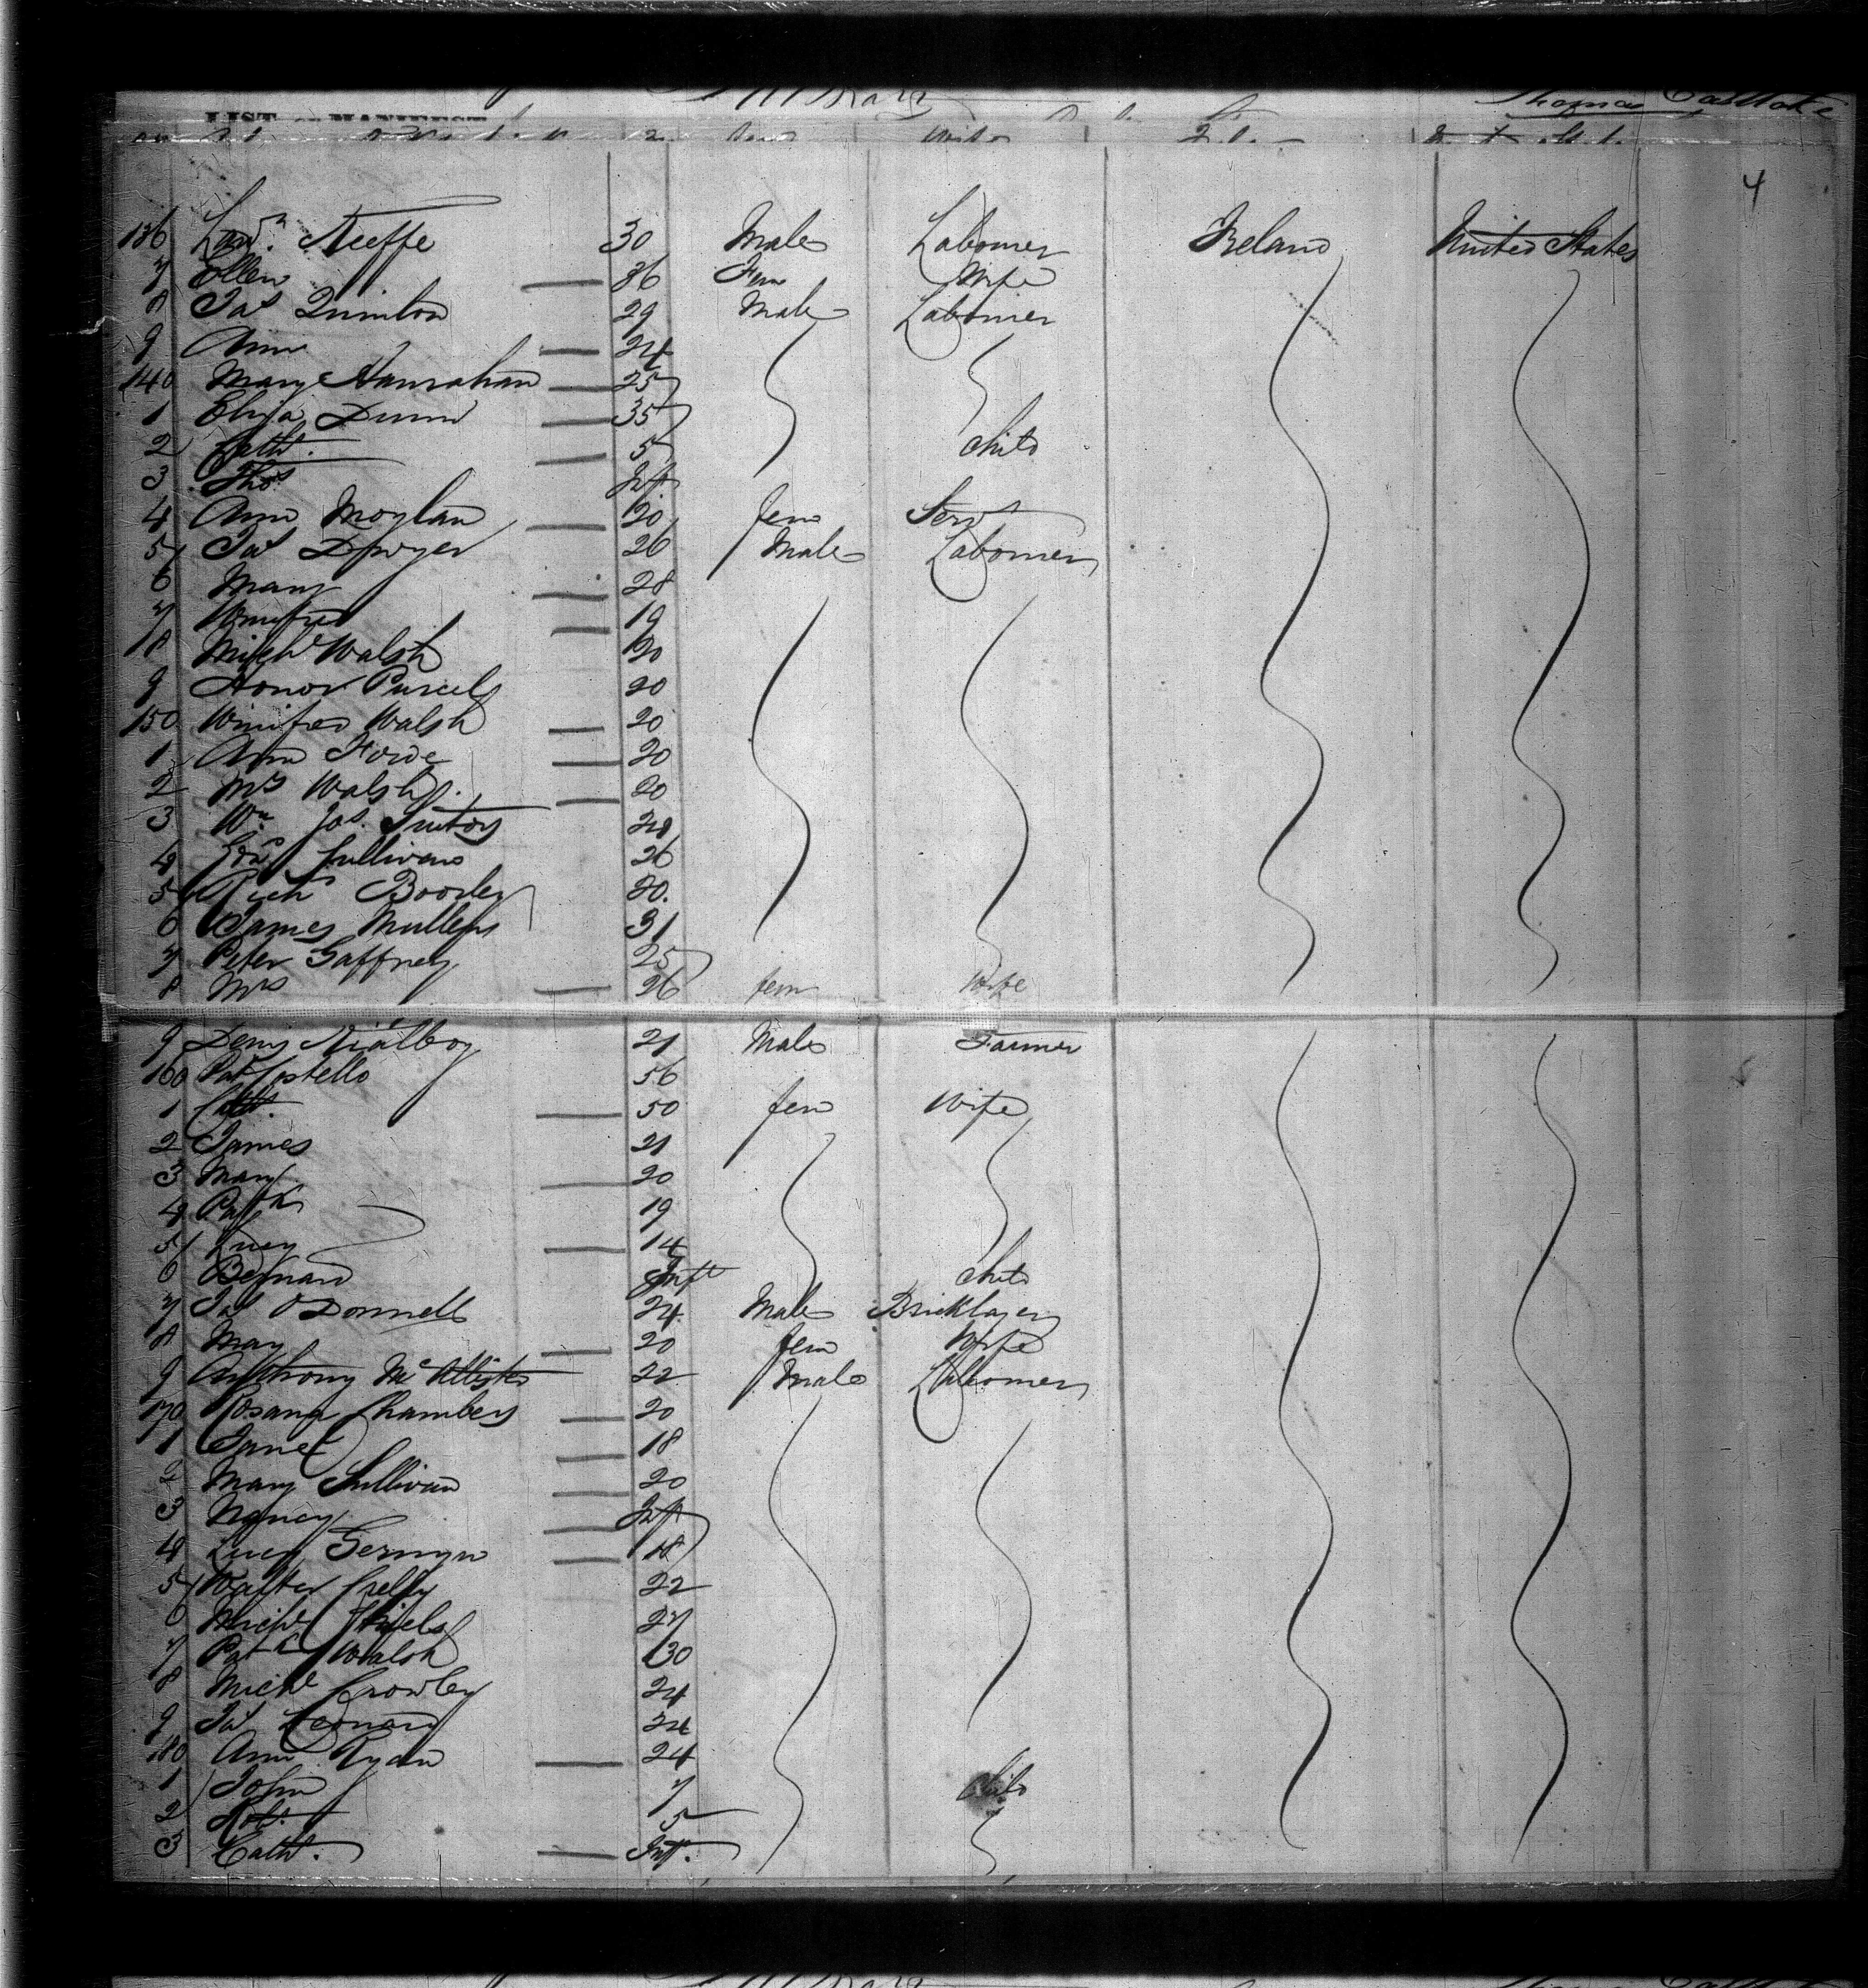 LIST OR MANIFEST
Thomas
4
136 Lawn. Keeffe 30 Male Labourer Ireland United States
7 Ellen 36 Fem Wife
8 Jas Quinlan 29 Male Labourer
9 Ann 24
140 Mary Hanrahan 25
1 Eliza Dunn 35
2 Cath. 5 Child
3 Thos Inft
4 Ann Moylan 20 fem Servt
5 Jas Dwyer 26 Male Labourer
6 Mary 28
7 Winifred 19
8 Michl Walsh 20
9 Honor Purcell 20
150 Winifred Walsh 20
1 Ann Howe 20
2 Mrs Walsh 20
3 Wm Jos. 20
4 Edwd Sullivan 26
5 Richd 20.
6 James Mullens 31
7 Peter Gaffney 25
8 Mrs 26 fem Wife
9 Denis 21 Male Farmer
160 Pat Costello 56
1 Cath. 50 fem Wife
2 James 21
3 Mary 20
4 Patk 19
5 Lucy 14
6 Bernard Inft Child
7 Jas O'Donnell 24 Male Bricklayer
8 Mary 20 fem Wife
9 Anthony McAllister 22 Male Labourer
170 Rosana Chambers 20
1 Jane 18
2 Mary Sullivan 20
3 Nancy Inft
4 Lucy Germyn 18
5 Walter 22
6 Michl 27
7 Patk Walsh 30
8 Michl Crowley 24
9 Jas Leonard 24
180 Ann Ryan 24
1 John 7 Child
2 Robt. 5
3 Cath. Inft.